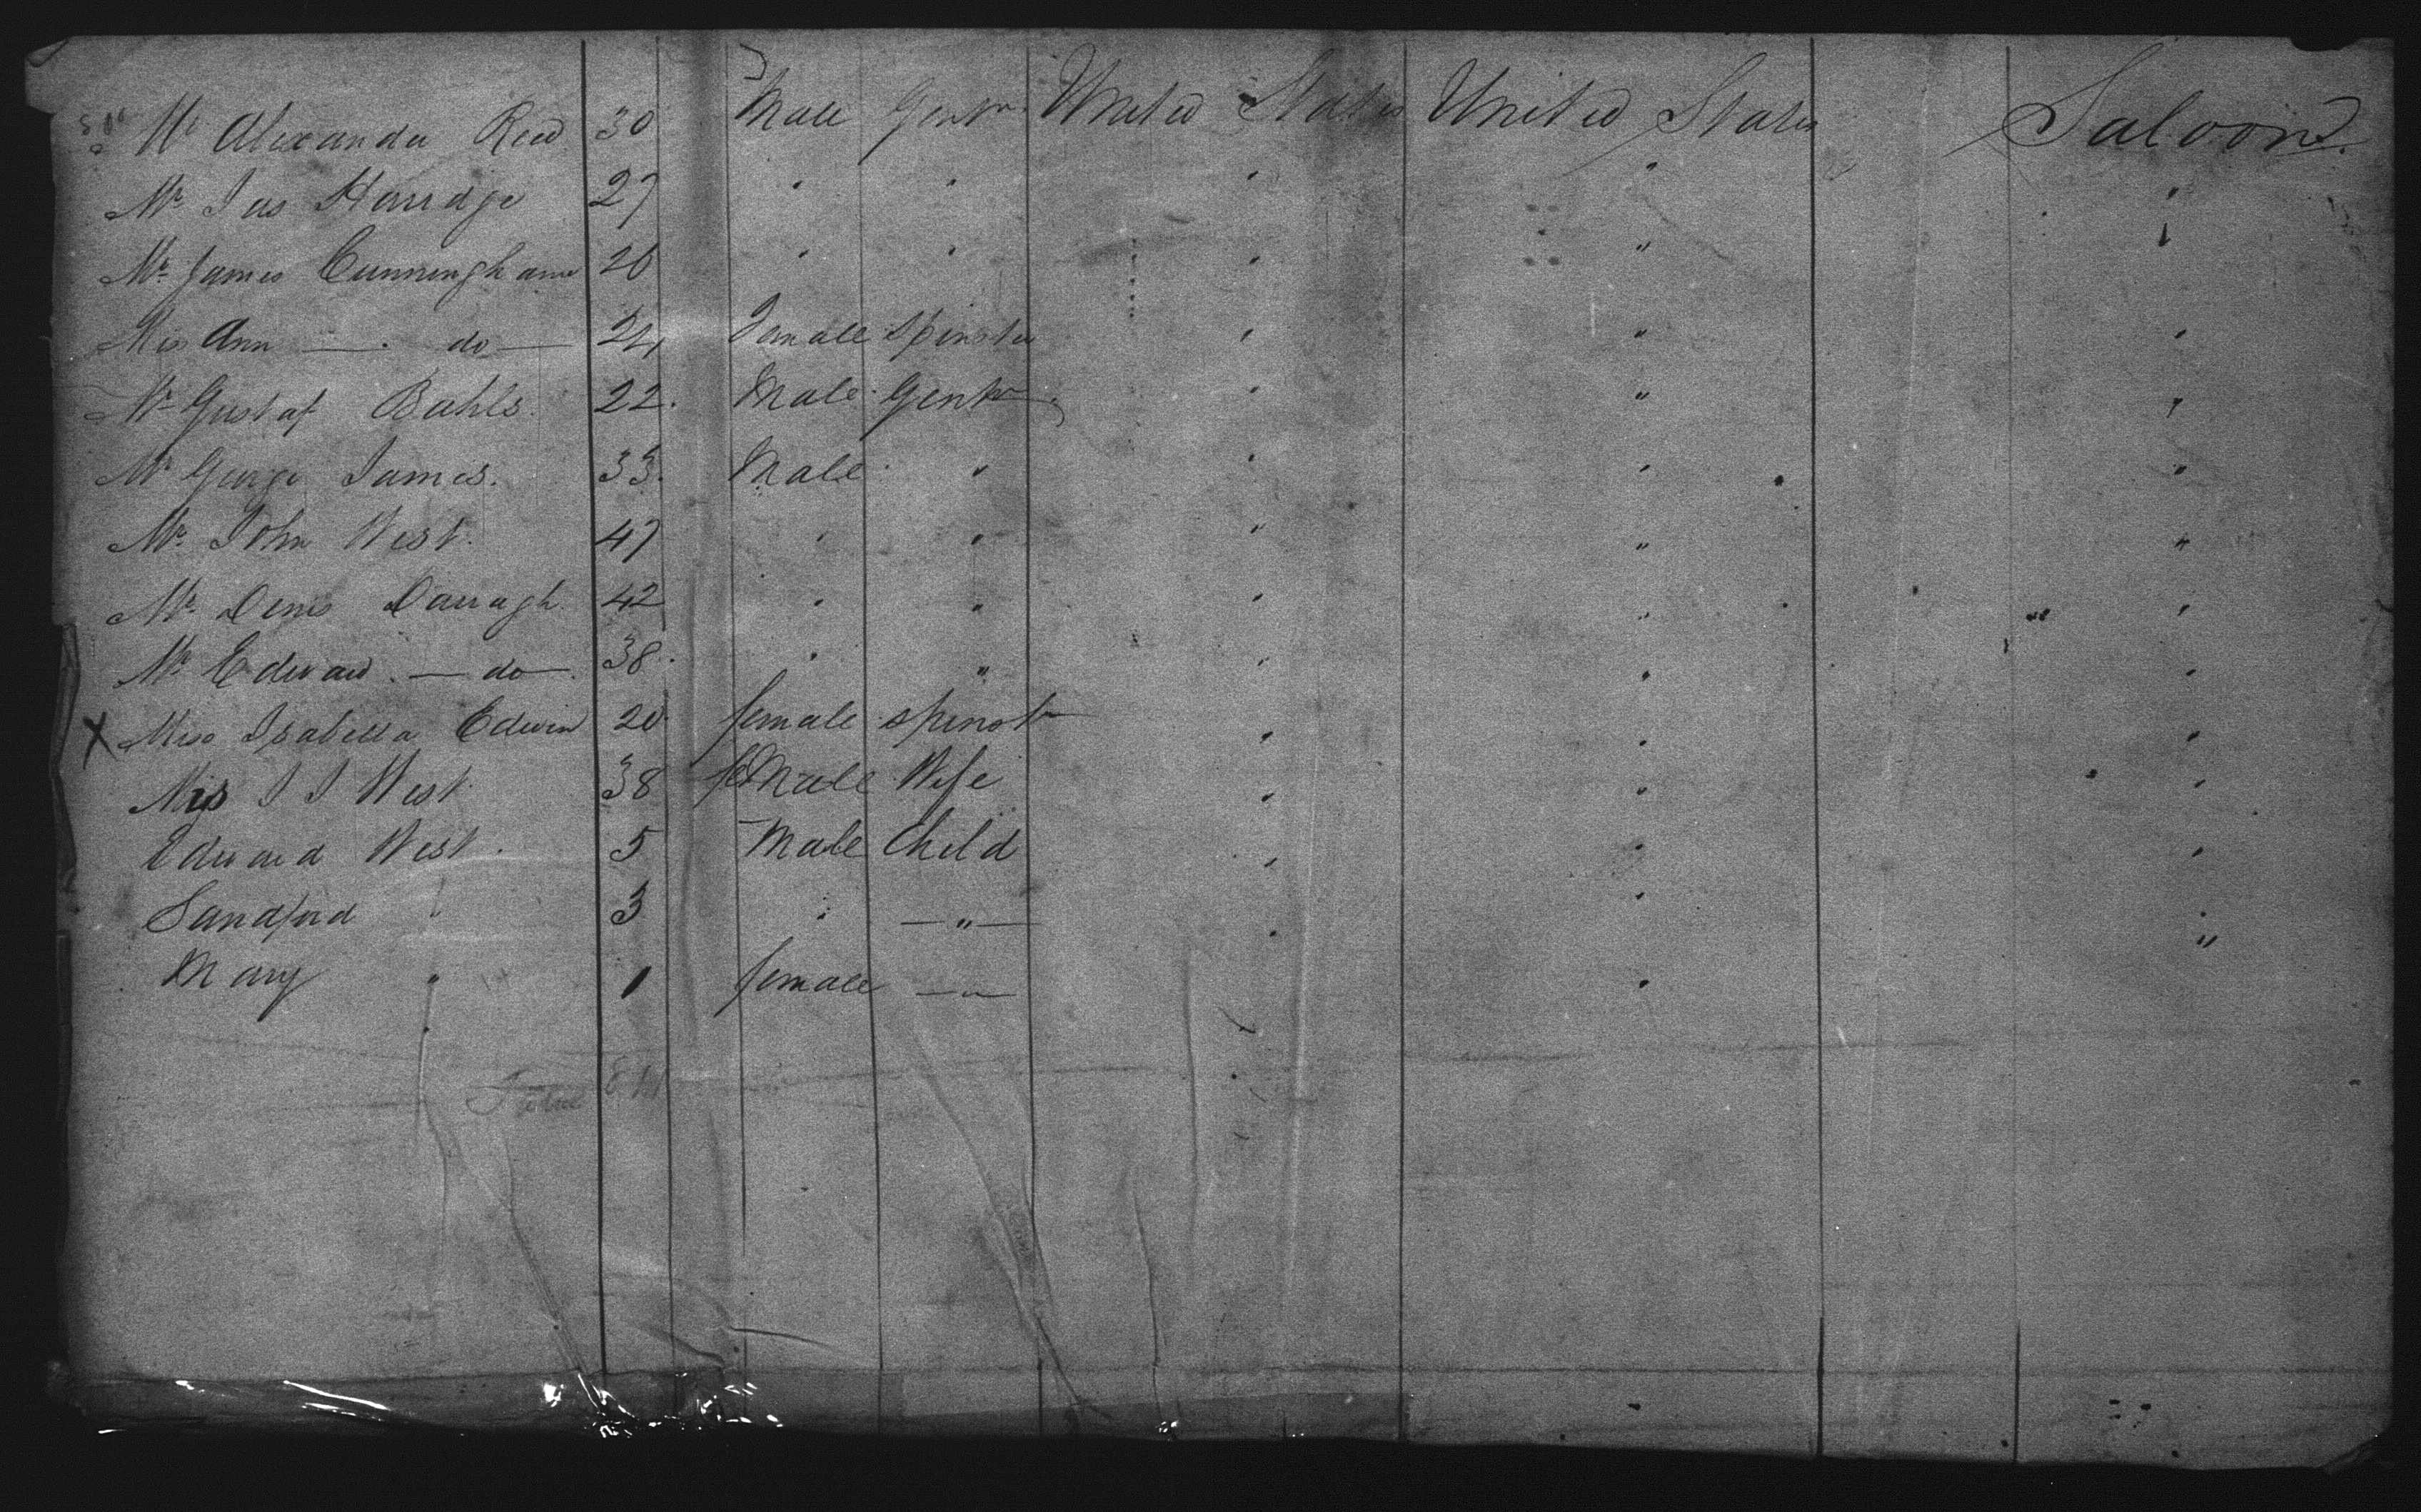 Mr Alexander Reed 30 Male Gentn. United States United States Saloon
Mr Jas Harridge 27 " " " " "
Mr James Cunningham 26 " " " " "
Mis Ann — do — 24 Female Spinster " " "
Mr Gustaf Bahls. 22. Male Gentn " " "
Mr George James. 33. Male " " " "
Mr John West. 47 " " " " "
Mr Denis Darragh. 42 " " " " "
Mr Edward. — do — 38. " " " " "
X Miss Isabella Edwin 20 female spinstr " " "
Mis J J West 38 feMale Wife " " "
Edward West. 5 Male Child " " "
Sandford " 3 " — " — " " "
Mary " 1 female — " — " "
Total